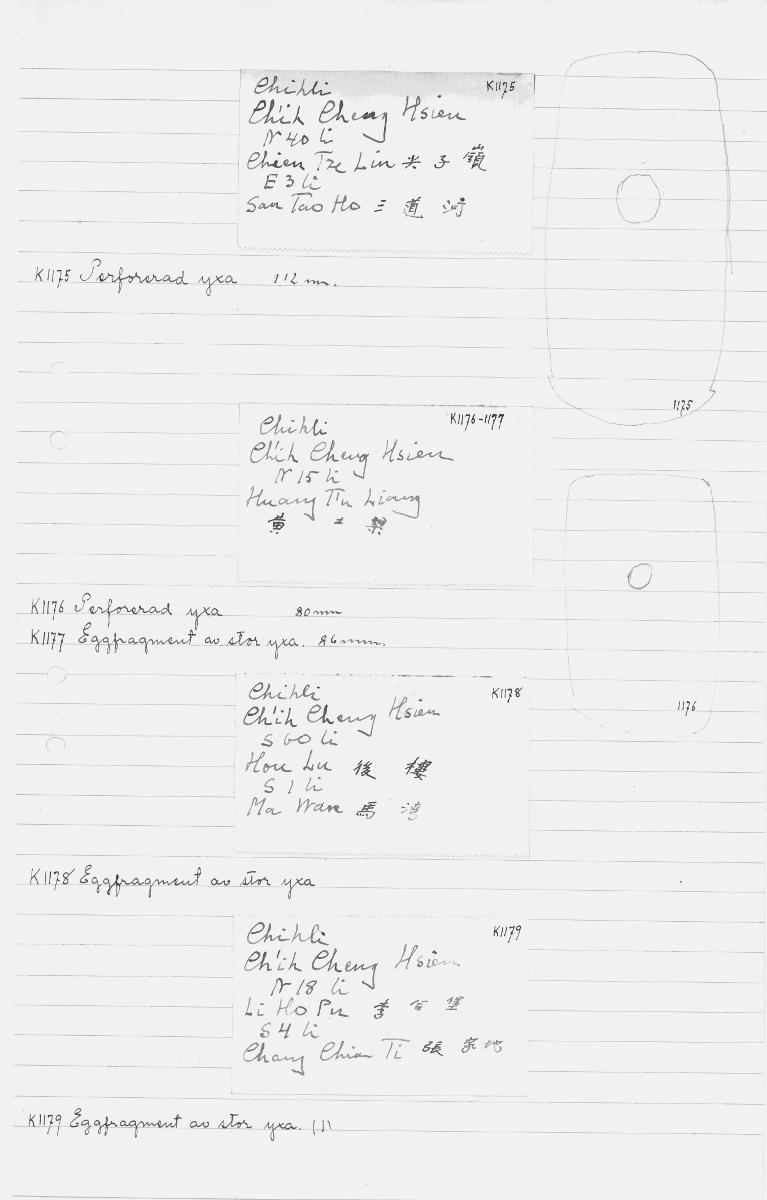 K1175
Chihli
Ch'ih Cheng Hsien
N 40 li
Chien Tze Lin 尖 子 嶺
E 3 li
San Tao Ho 三 道 河
K1175 Perforerad yxa 112 mm.
1175
K1176-1177
Chihli
Ch'ih Cheng Hsien
N 15 li
Huang T'u Liang
黃 土 樑
K1176 Perforerad yxa 80 mm
K1177 Eggfragment av stor yxa. 86 mm.
1176
K1178
Chihli
Ch'ih Cheng Hsien
S 60 li
Hou Lu 後 樓
S 1 li
Ma Wan 馬 湾
K1178 Eggfragment av stor yxa
K1179
Chihli
Ch'ih Cheng Hsien
N 18 li
Li Ho Pu 李 堡
S 4 li
Chang Chia Ti 張 家 地
K1179 Eggfragment av stor yxa.